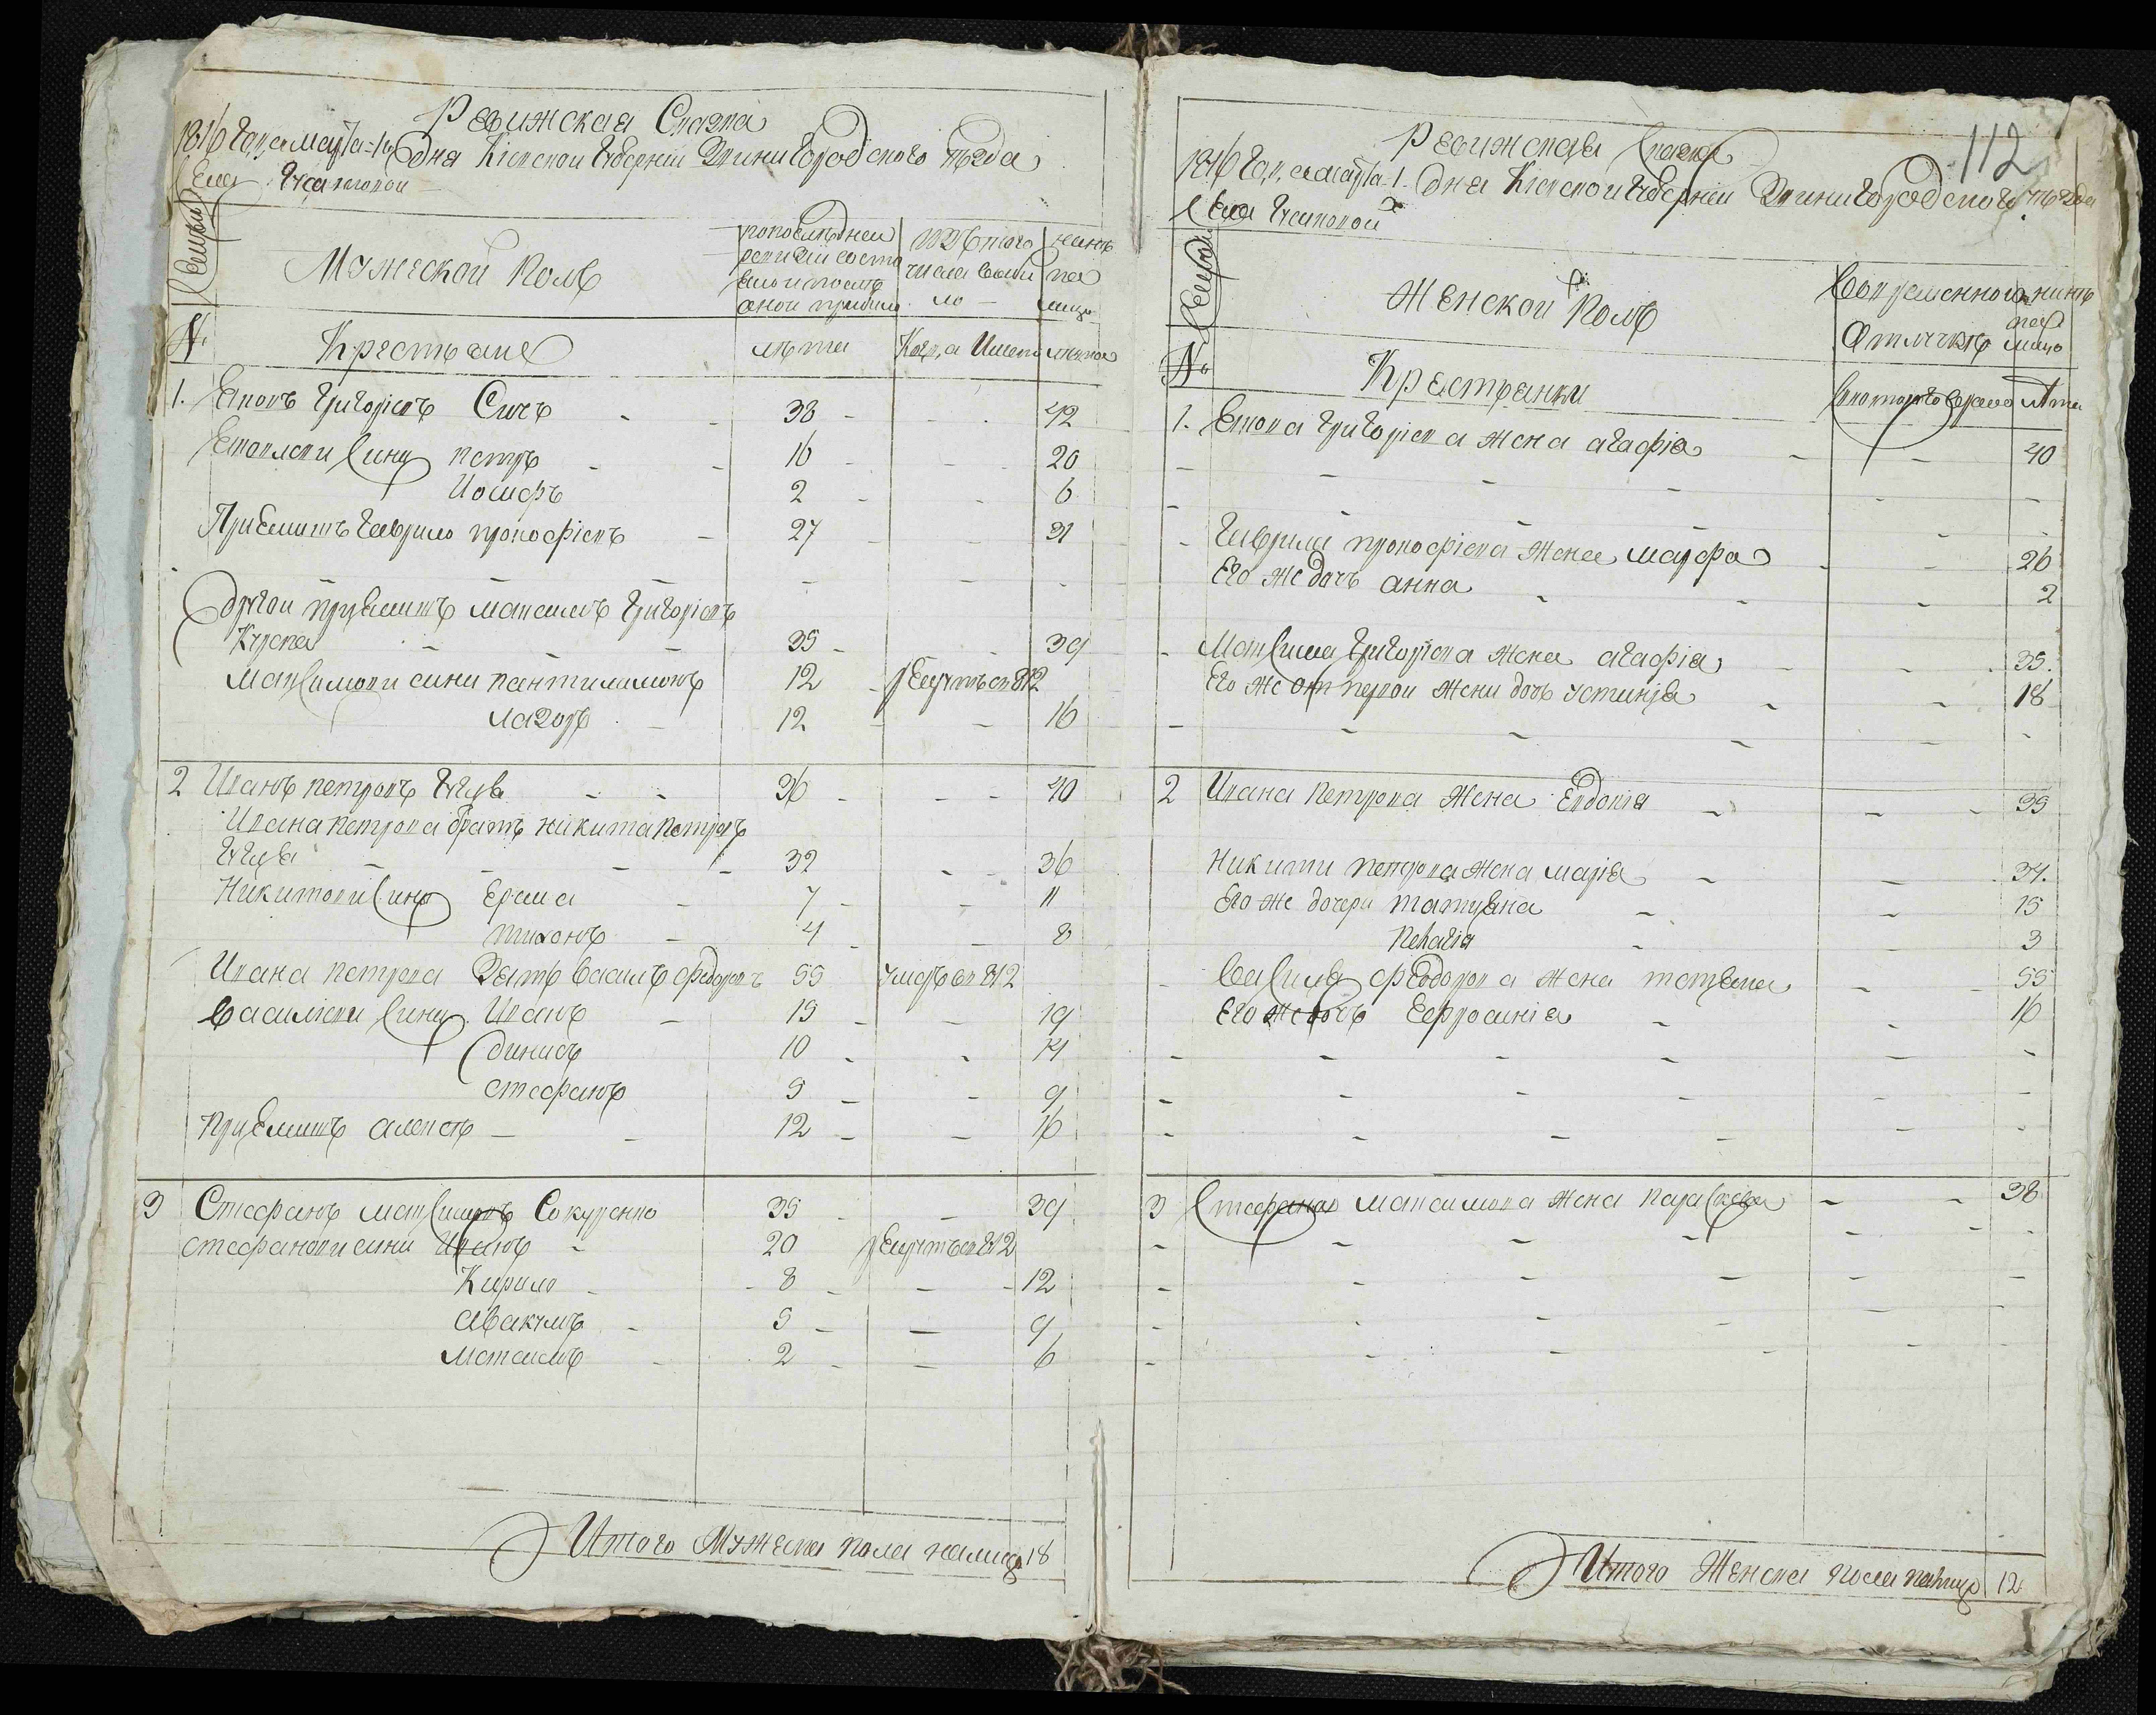 Ревижская Сказка
1816 года марта 1 дня Кіевской Губерніи Звинигородского уѣзда
Села Гусаковой
Семьи
Мужеской полъ
по последней ревизіи состояло и после оной прибыло
изъ того числа выбыло
нынѣ на лицо
№
Крестьяне
лѣта
Когда Именно
лѣта
1. Яковъ Григоріевъ Сичъ 38 42
Яковлеви Сины петръ 16 20
Иосифъ 2 6
Приемишъ Гаврило прокофіевъ 27 31
другой приемишъ максимъ Григоріевъ
35 39
Максимови сини пантилимонъ 12 812
лазоръ 12 16
2 Иванъ петровъ 36 40
Ивана петрова братъ никита петровъ
32 36
Никитови Сины Ерема 7 11
тихонъ 4 8
Ивана петрова Зять василь федоровъ 55 умеръ в 812
василіеви Сины Иванъ 15 19
динисъ 10 14
стефанъ 5 9
приемишъ алексей 12 16
3 Стефанъ максимовъ Сокуренко 35 39
стефанови сини Иванъ 20 812
Кирило 8 12
авакумъ 5 9
максимъ 2 6
Итого Мужеска пола налицо 18
112
Ревижская Сказка
1816 года марта 1 дня Кіевской Губерніи Звинигородского уѣзда
Села Гусаковой
Семьи
Женской полъ
Во временной отлучкѣ
нинѣ на лицо
№
Крестьянки
Скоторого времени
лѣта
1. Якова Григоріева жена агафія 40
Гаврила прокофіева жена марфа 26
Его же дочь анна 2
Максима Григоріева жена агафія 35.
Его же от первой жени дочь устинія 18
2 Ивана петрова жена Евдокія 35
Никити петрова жена марія 34.
Его же дочери татуяна 15
пелагія 3
василя федорова жена татуяна 55
Его же дочь Ефросинія 16
3 Стефана максимова жена параскева 38
Итого Женска пола налицо 12